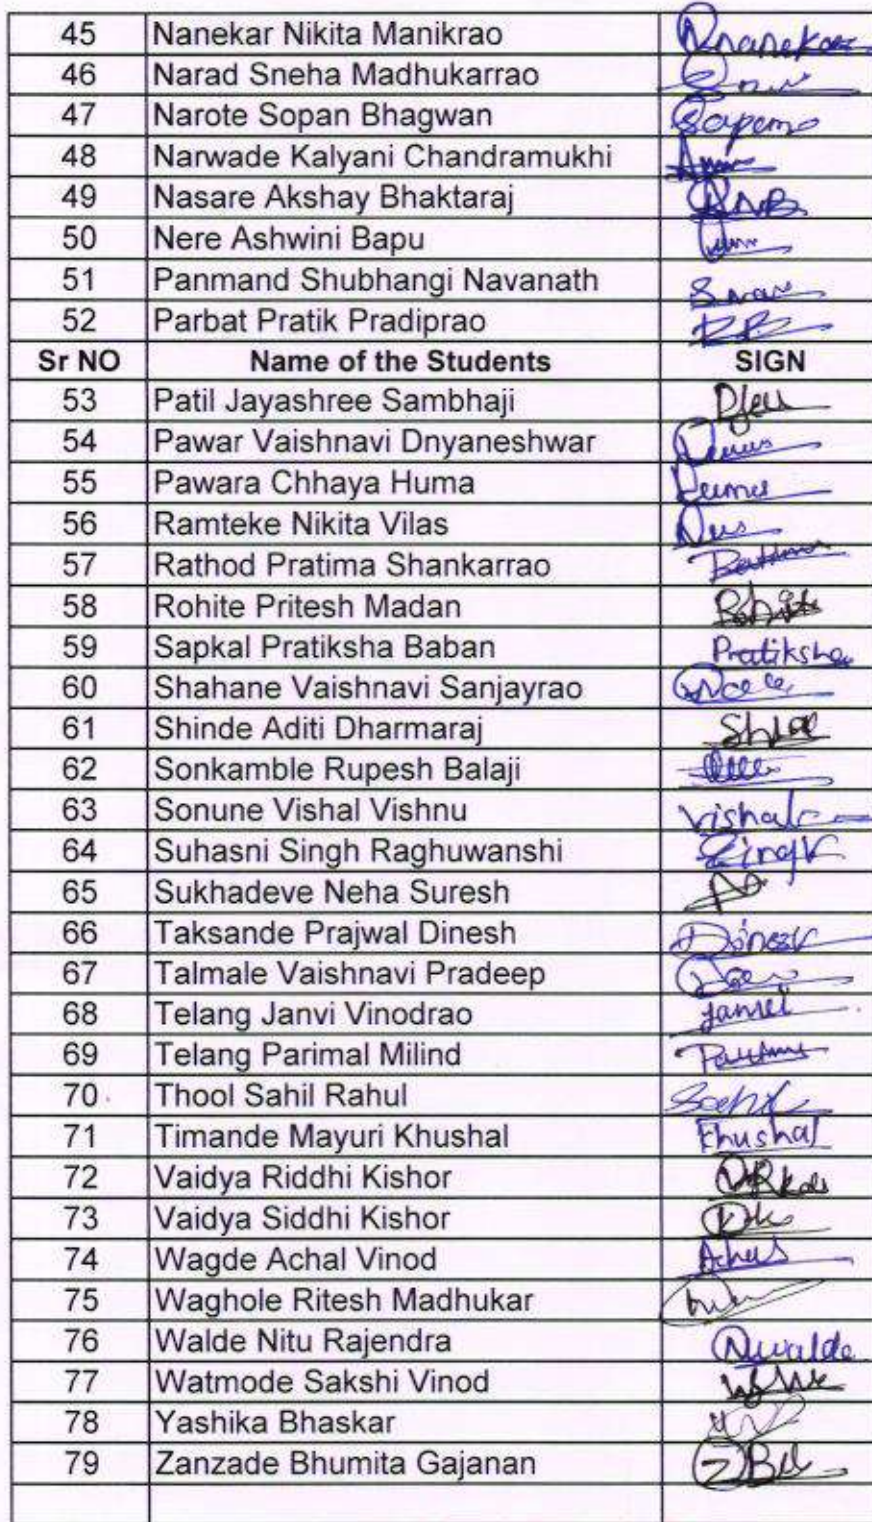 45 Nanekar Nikita Manikrao Nnanekar
46 Narad Sneha Madhukarrao
47 Narote Sopan Bhagwan
48 Narwade Kalyani Chandramukhi
49 Nasare Akshay Bhaktaraj
50 Nere Ashwini Bapu
51 Panmand Shubhangi Navanath
52 Parbat Pratik Pradiprao
Sr NO Name of the Students SIGN
53 Patil Jayashree Sambhaji
54 Pawar Vaishnavi Dnyaneshwar
55 Pawara Chhaya Huma
56 Ramteke Nikita Vilas
57 Rathod Pratima Shankarrao
58 Rohite Pritesh Madan
59 Sapkal Pratiksha Baban Pratiksha
60 Shahane Vaishnavi Sanjayrao
61 Shinde Aditi Dharmaraj
62 Sonkamble Rupesh Balaji
63 Sonune Vishal Vishnu Vishal
64 Suhasni Singh Raghuwanshi Singh
65 Sukhadeve Neha Suresh
66 Taksande Prajwal Dinesh Dinesh
67 Talmale Vaishnavi Pradeep
68 Telang Janvi Vinodrao
69 Telang Parimal Milind
70 Thool Sahil Rahul
71 Timande Mayuri Khushal Khushal
72 Vaidya Riddhi Kishor
73 Vaidya Siddhi Kishor
74 Wagde Achal Vinod
75 Waghole Ritesh Madhukar
76 Walde Nitu Rajendra Nwalde
77 Watmode Sakshi Vinod
78 Yashika Bhaskar
79 Zanzade Bhumita Gajanan